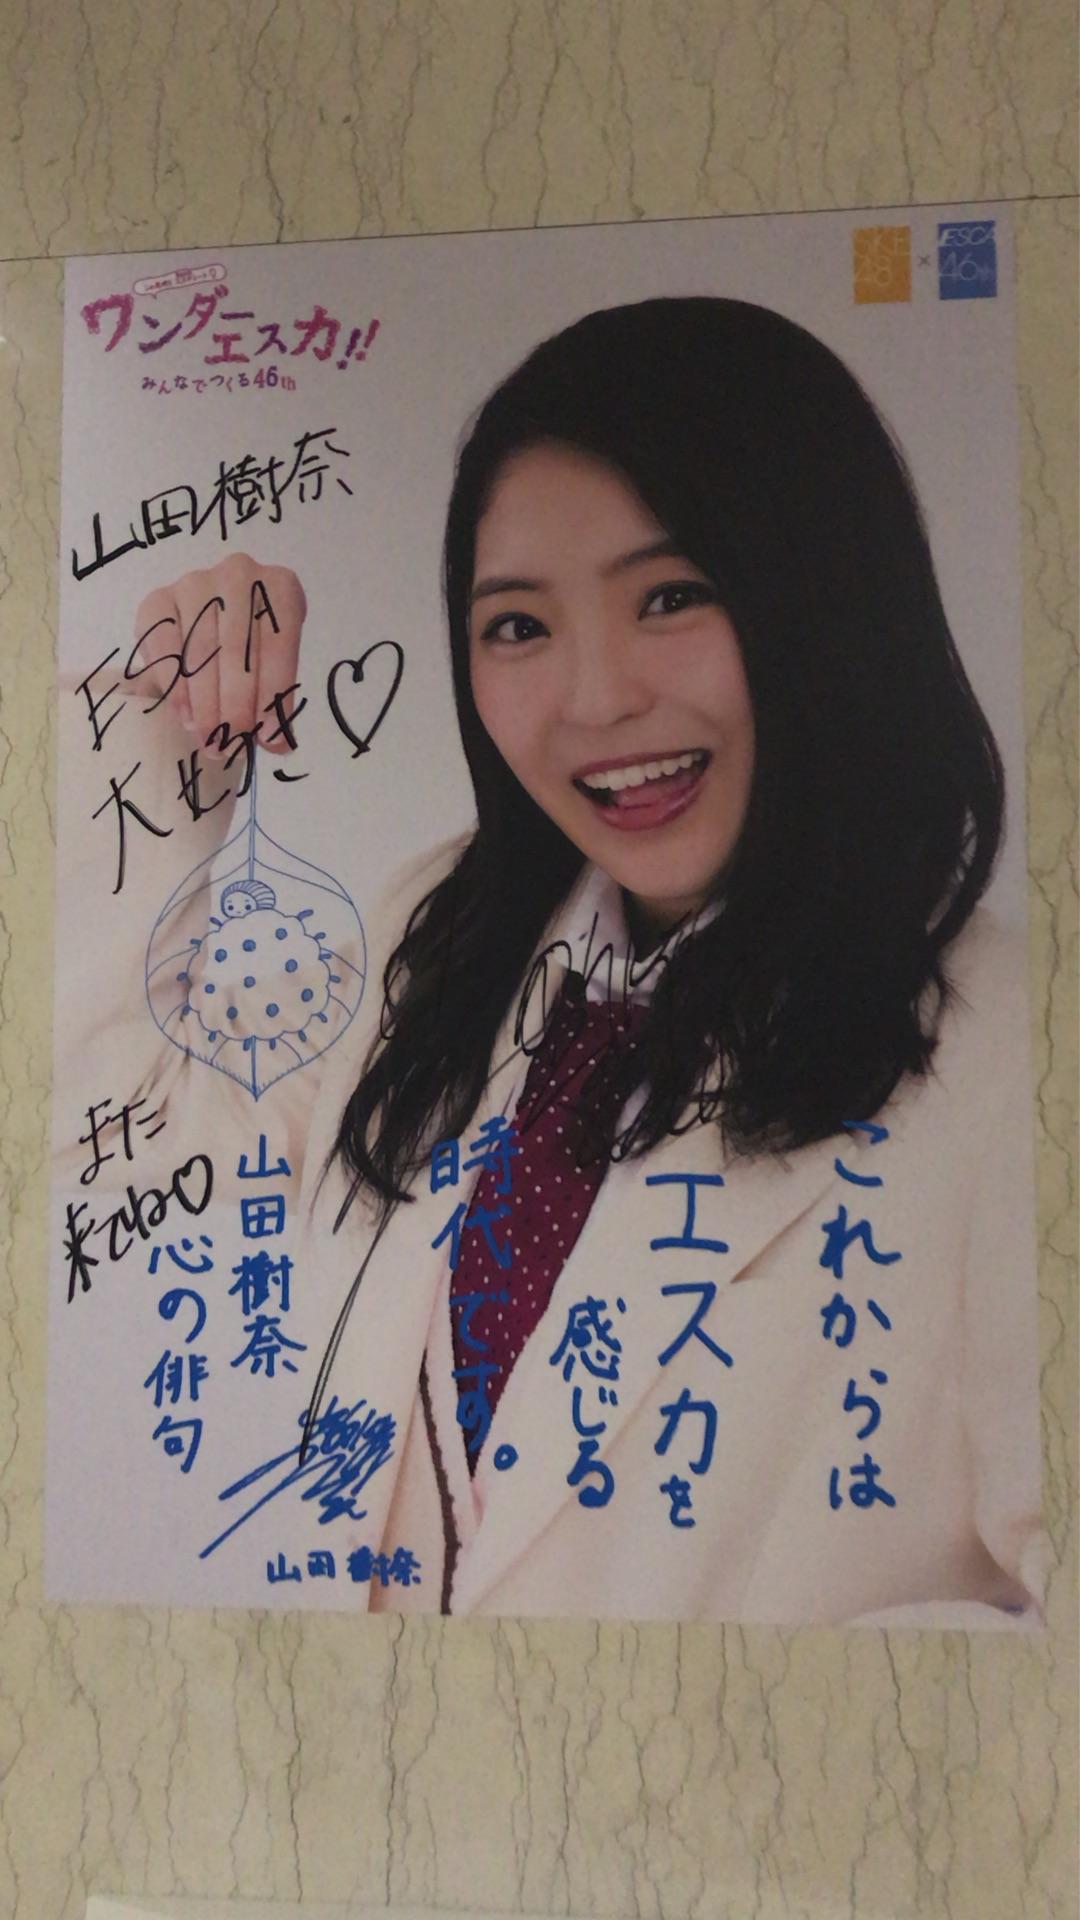 SKE
48
×
ESCA
46th
ワンダーエスカ!!
みんなでつくる46th
山田樹奈
ESCA
大好き♡
また
来てね♡
これからは
エスカを
感じる
時代です。
山田樹奈
心の俳句
山田樹奈